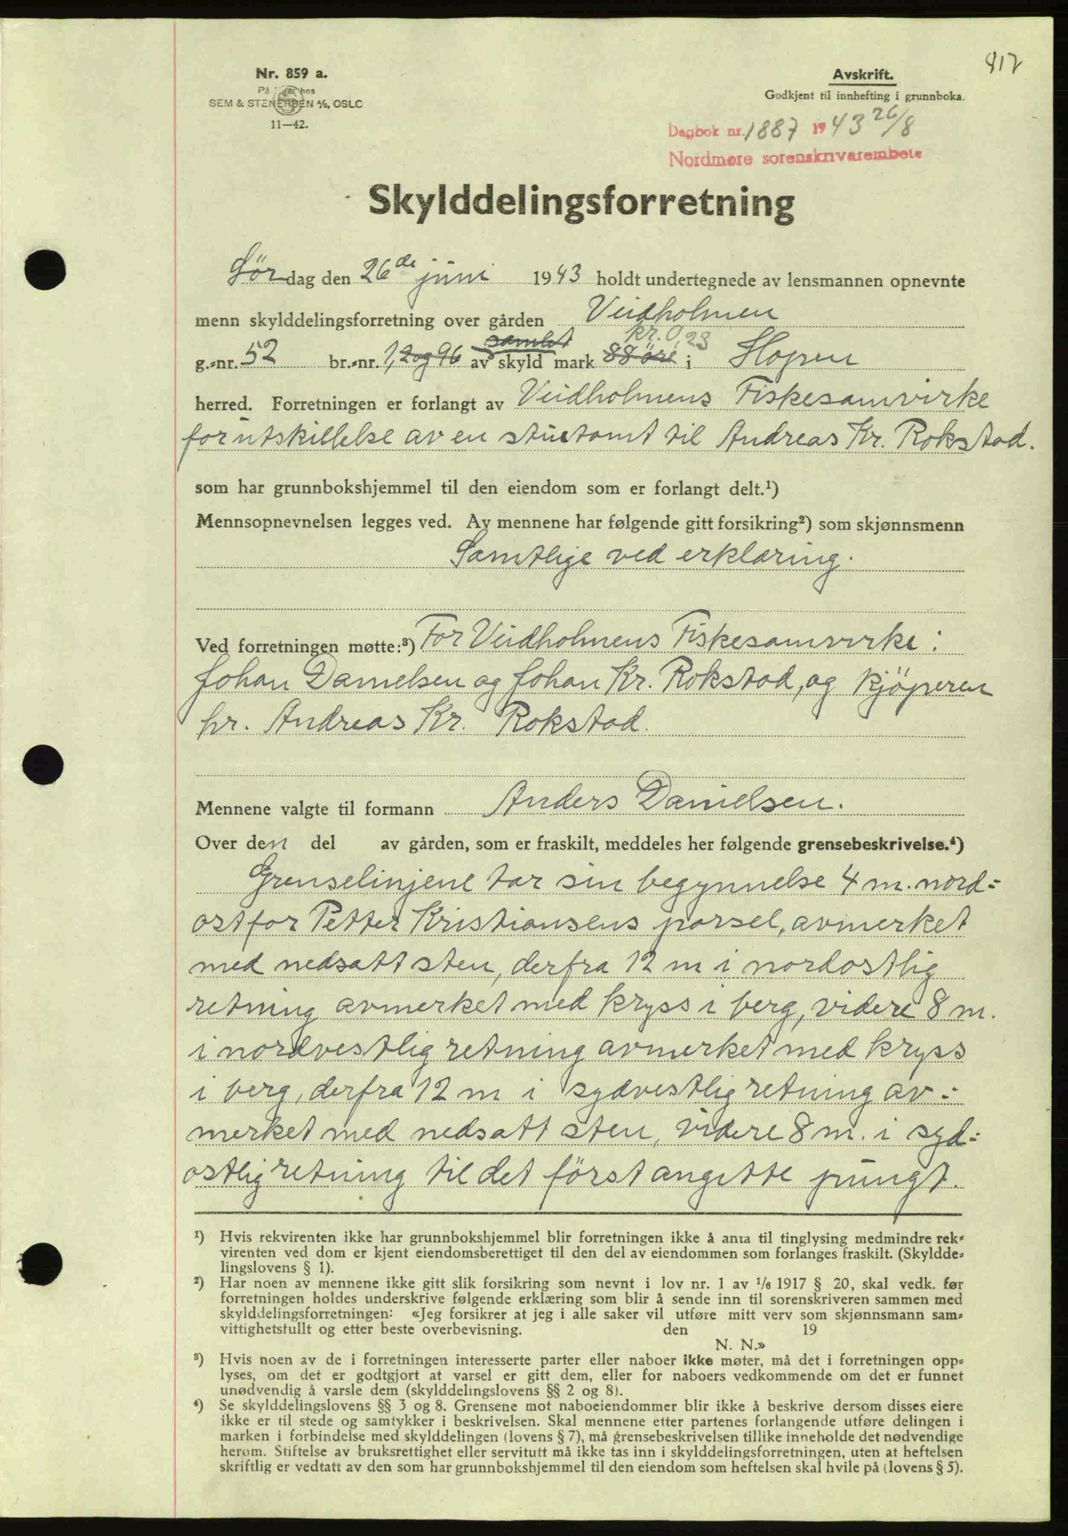 817
Nr. 859 a.
På lager hos
SEM & STENERSEN A/S, OSLO
11—42.
Avskrift.
Godkjent til innhefting i grunnboka.
Dagbok nr. 1887 1943 26/8
Nordmøre sorenskrivarembete
Skylddelingsforretning
Lördag den 26de juni 1943 holdt undertegnede av lensmannen opnevnte
menn skylddelingsforretning over gården Veidholmen
g.-nr. 52 br.-nr. 1, 2 og 96 samlet av skyld mark 88 øre kr. 0,23 i Hopen
herred. Forretningen er forlangt av Veidholmens Fiskesamvirke
for utskillelse av en stuetomt til Andreas Kr. Rokstad.
som har grunnbokshjemmel til den eiendom som er forlangt delt.¹)
Mennsopnevnelsen legges ved. Av mennene har følgende gitt forsikring²) som skjønnsmenn
Samtlige ved erklæring.
Ved forretningen møtte:³) For Veidholmens Fiskesamvirke:
Johan Danielsen og Johan Kr. Rokstad, og kjöperen
hr. Andreas Kr. Rokstad.
Mennene valgte til formann Anders Danielsen.
Over den del av gården, som er fraskilt, meddeles her følgende grensebeskrivelse.⁴)
Grenselinjene tar sin begynnelse 4 m. nord-
ost for Petter Kristiansens parsel, avmerket
med nedsatt sten, derfra 12 m i nordostlig
retning avmerket med kryss i berg, videre 8 m.
i nordvestlig retning avmerket med kryss
i berg, derfra 12 m i sydvestlig retning av-
merket med nedsatt sten, videre 8 m. i syd-
ostlig retning til det först angitte pungt.
¹) Hvis rekvirenten ikke har grunnbokshjemmel blir forretningen ikke å anta til tinglysing medmindre rek-
virenten ved dom er kjent eiendomsberettiget til den del av eiendommen som forlanges fraskilt. (Skyldde-
lingslovens § 1).
²) Har noen av mennene ikke gitt slik forsikring som nevnt i lov nr. 1 av 1/6 1917 § 20, skal vedk. før
forretningen holdes underskrive følgende erklæring som blir å sende inn til sorenskriveren sammen med
skylddelingsforretningen: «Jeg forsikrer at jeg i alle saker vil utføre mitt verv som skjønnsmann sam-
vittighetsfullt og etter beste overbevisning. den 19
N. N.»
³) Hvis noen av de i forretningen interesserte parter eller naboer ikke møter, må det i forretningen opp-
lyses, om det er godtgjort at varsel er gitt dem, eller for naboers vedkommende om det er funnet
unødvendig å varsle dem (skylddelingslovens §§ 2 og 8).
⁴) Se skylddelingslovens §§ 3 og 8. Grensene mot naboeiendommer blir ikke å beskrive dersom disses eiere
ikke er til stede og samtykker i beskrivelsen. Skal mennene etter partenes forlangende utføre delingen i
marken i forbindelse med skylddelingen (lovens § 7), må grensebeskrivelsen tillike inneholde det nødvendige
herom. Stiftelse av bruksrettighet eller servitutt må ikke tas inn i skylddelingsforretningen, uten at heftelsen
skriftlig er vedtatt av den som har grunnbokshjemmel til den eiendom som heftelsen skal hvile på (lovens § 5).